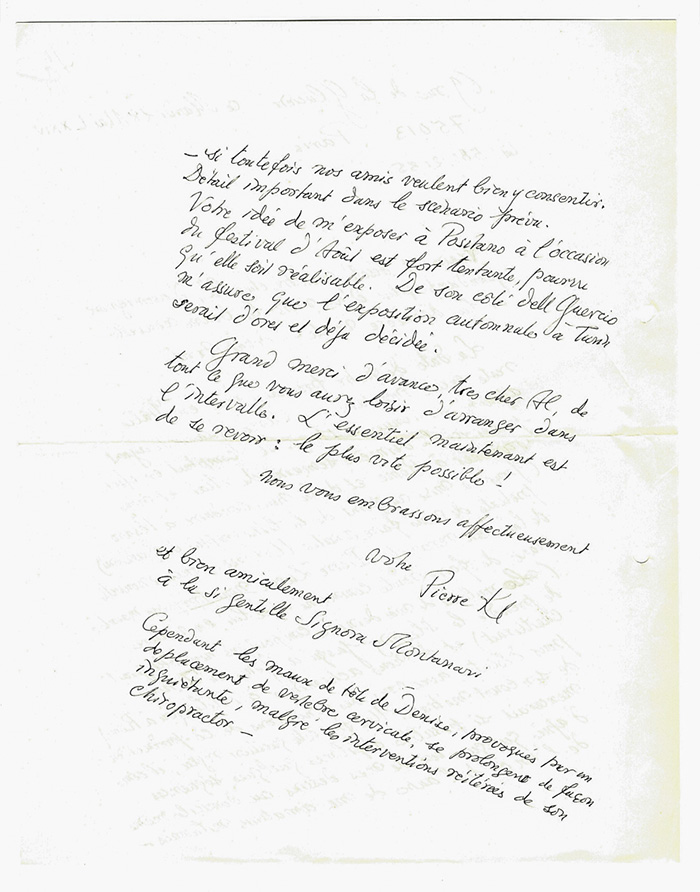 - si toutefois nos amis veulent bien y consentir.
Détail important dans le scénario prévu.
Votre idée de m'exposer à Positano à l'occasion
du festival d'Août est fort tentante, pourvu
qu'elle soit réalisable. De son côté dell Guercio
m'assure que l'exposition automnale à Turin
serait d'ores et déjà décidée.
Grand merci d'avance, très cher Al, de
tout ce que vous aurez loisir d'arranger dans
l'intervalle. L'essentiel maintenant est
de se revoir : le plus vite possible !
nous vous embrassons affectueusement
votre
Pierre Kl
et bien amicalement
à la si gentille Signora Montanari
Cependant les maux de tête de Denise, provoqués par un
déplacement de vertèbre cervicale, se prolongent de façon
inquiétante, malgré les interventions réitérées de son
chiropractor -